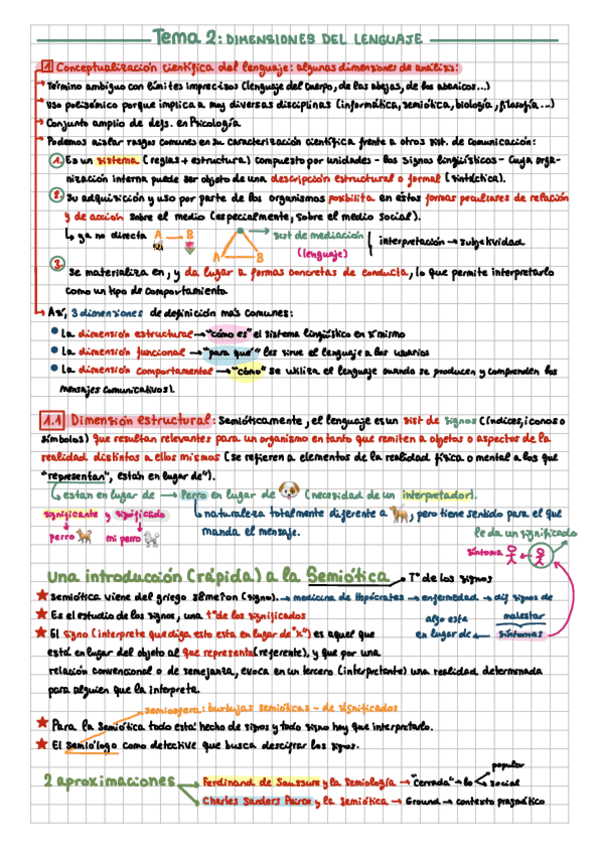 Tema 2: DIMENSIONES DEL LENGUAJE
1 Conceptualización científica del lenguaje: algunas dimensiones de análisis:
Término ambiguo con límites imprecisos (lenguaje del cuerpo, de las abejas, de los abanicos...)
Uso polisémico porque implica a muy diversas disciplinas (informática, semiótica, biología, filosofía...)
Conjunto amplio de defs. en Psicología
Podemos aislar rasgos comunes en su caracterización científica frente a otros sist. de comunicación:
1. Es un sistema (reglas + estructura) compuesto por unidades - los signos lingüísticos - cuya orga-
nización interna puede ser objeto de una descripción estructural o formal (sintáctica).
2. Su adquisición y uso por parte de los organismos posibilita en éstos formas peculiares de relación
y de acción sobre el medio (especialmente, sobre el medio social).
ya no directa A → B
A B
sist de mediación
(lenguaje)
interpretación → subjetividad
3. Se materializa en, y da lugar a formas concretas de conducta, lo que permite interpretarlo
como un tipo de comportamiento
Así, 3 dimensiones de definición más comunes:
La dimensión estructural → "cómo es" el sistema lingüístico en sí mismo
La dimensión funcional → "para qué" les sirve el lenguaje a los usuarios
La dimensión comportamental → "cómo" se utiliza el lenguaje cuando se producen y comprenden los
mensajes comunicativos).
1.1 Dimensión estructural: Semióticamente, el lenguaje es un sist de signos (índices, iconos o
símbolos) que resultan relevantes para un organismo en tanto que remiten a objetos o aspectos de la
realidad distintos a ellos mismos (se refieren a elementos de la realidad física o mental a los que
"representan", están en lugar de").
están en lugar de → Perro en lugar de (necesidad de un interpretador).
significante y significado
naturaleza totalmente diferente a , pero tiene sentido para el que
manda el mensaje.
perro mi perro
le da un significado
síntoma
Una introducción (rápida) a la Semiótica
Tª de los signos
Semiótica viene del griego sēmeîon (signo). → medicina de Hipócrates → enfermedad → dif signos de
malestar
Es el estudio de los signos, una tª de los significados
algo esta
en lugar de ← síntomas
El signo (interprete que diga esto está en lugar de "x") es aquel que
está en lugar del objeto al que representa (referente), y que por una
relación convencional o de semejanza, evoca en un tercero (interpretante) una realidad determinada
para alguien que la interpreta.
semiosfera: burbujas semióticas - de significados
Para la semiótica todo está hecho de signos y todo signo hay que interpretarlo.
El semiólogo como detective que busca descifrar los signos.
2 aproximaciones
popular
Ferdinand de Saussure y la Semiología → "Cerrada" → lo social
Charles Sanders Peirce y la Semiótica → Ground → contexto pragmático